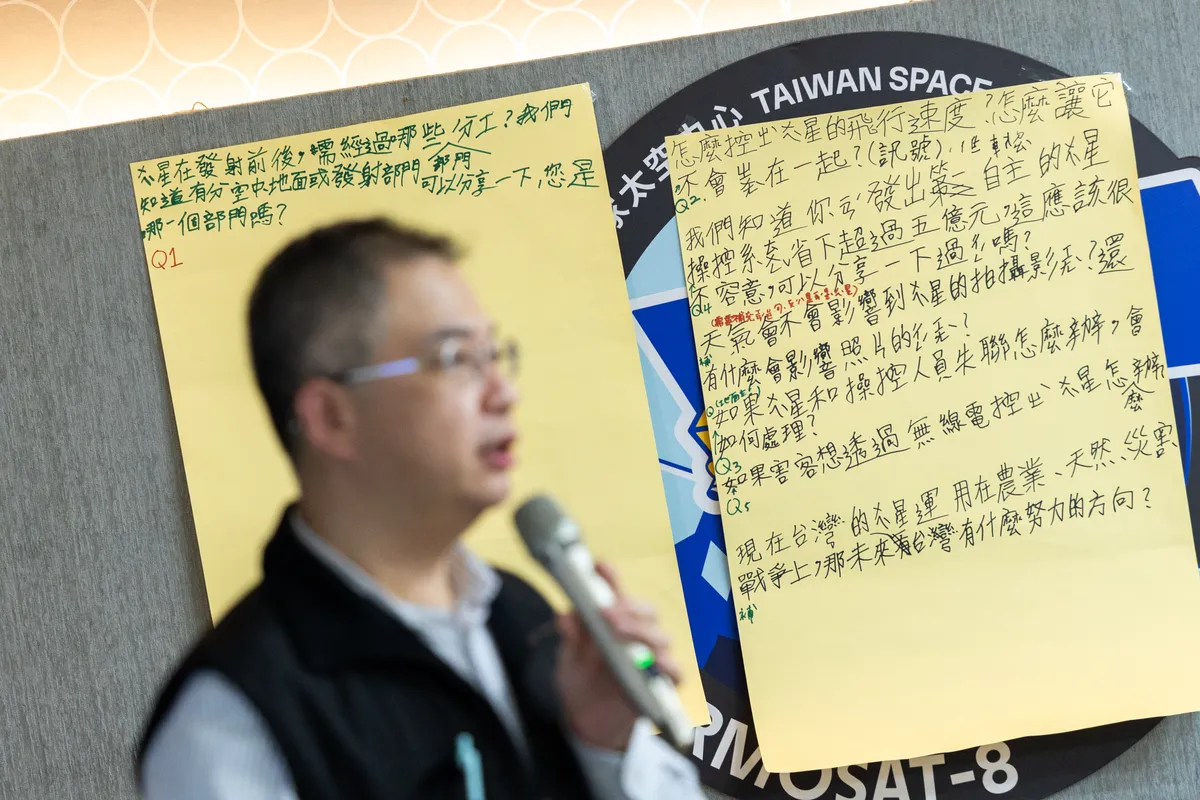 卫星在發射前後,需經過哪些分工?我們
部門
知道有分空中地面或發射部門可以分享一下,您是
哪一個部門嗎?
Q1
太空中心 TAIWAN SPACE
怎麼控制卫星的飛行速度?怎麼讓它
不會差在一起?(訊號)
Q2.
我們知道你ㄇ發出第一自主的卫星
操控系统,省下超過五億元,這應該很
不容意,可以分享一下過ㄔ嗎?
Q4
天氣會不會影響到卫星的拍攝影片?還
有什麼會影響照片的
補
如果卫星和操控人員失聯怎麼辦,會
如何處理?
Q3
如果害客想透過無線電控制卫星怎麼辦
Q5
現在台灣的卫星運用在農業、天然災害
戰爭上,那未來台灣有什麼努力的方向?
補
RMOSAT-8